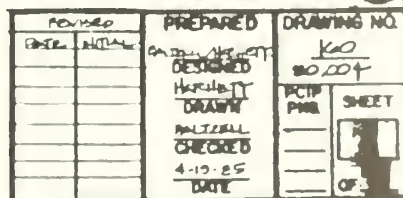 REVISED
DATE INITIAL
PREPARED
DESIGNED
DRAWN
BALTZELL
CHECKED
4-19-85
DATE
DRAWING NO.
K60
80,004
PCTP
PMB
SHEET
OF